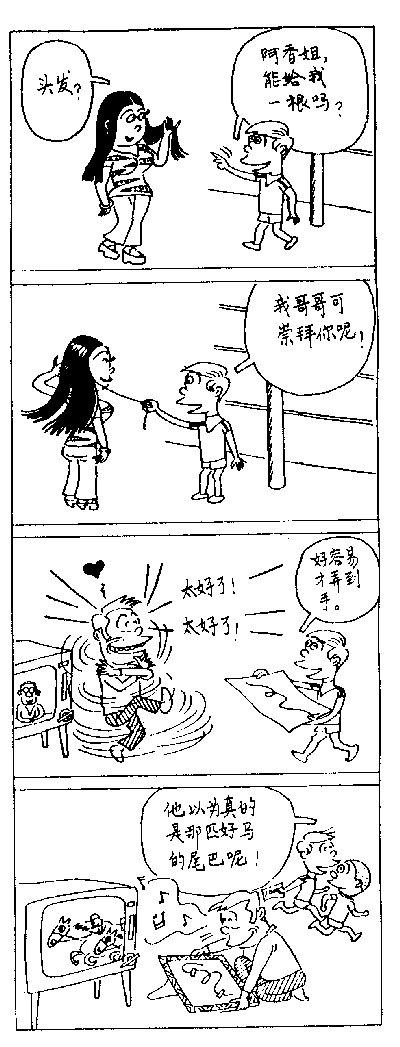 头发？
阿香姐，
能给我
一根吗？
我哥哥可
崇拜你呢！
太好了！
太好了！
好容易
才弄到
手。
他以为真的
是那匹好马
的尾巴呢！